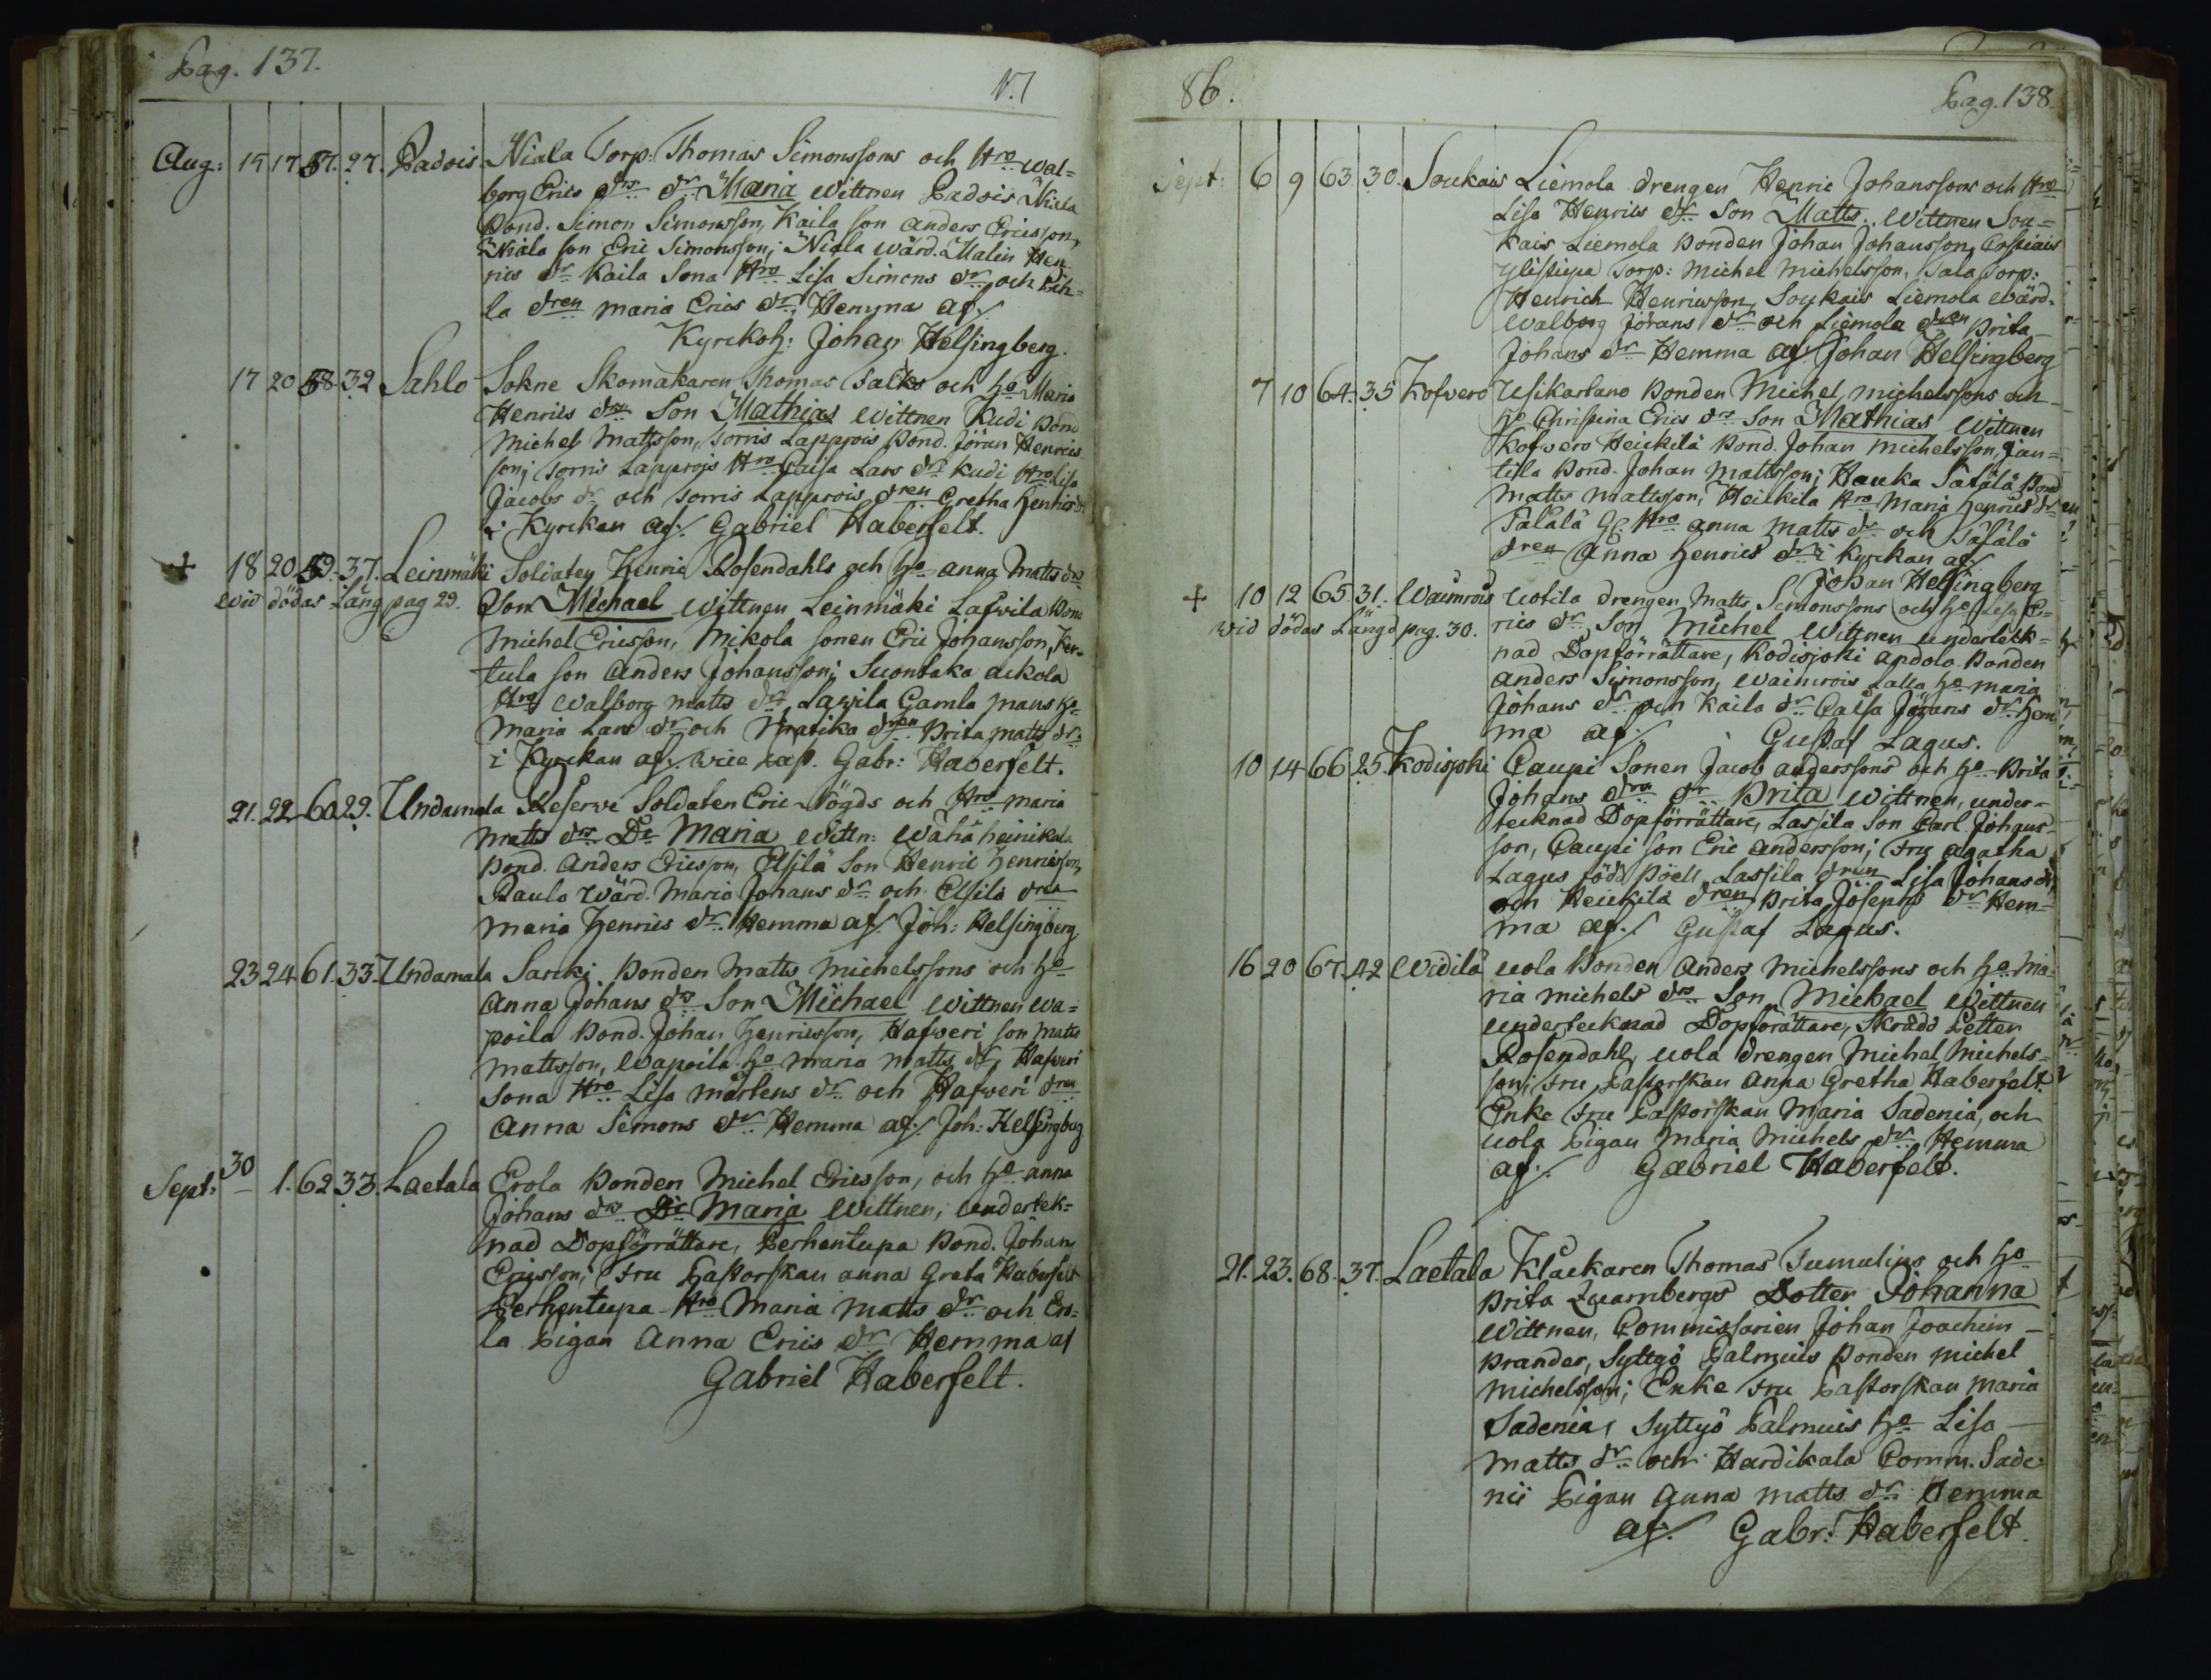 Pag. 137.
Aug: 15 17 57. 27. Padois Niala Torp. Thomas Simonssons och Hro Wal=
borg Erics drs dr Maria Wittnen Padois Niala
Bond. Simon Simonsson, Kaila son Anders Ericsson,
Niala son Eric Simonsson; Niala Wärd. Malin Hen
rics dr Kaila Sona Hro Lisa Simons dr och
la dren Maria Erics dr Hemma af/.
Kyrckoh: Johan Helsingberg.
17 20 58. 32 Sahlo Sokne Skomakaren Thomas Salks och ho Maria
Henrics drs Son Mathias Wittnen Kudi Bond
Michel Mattsson, Torris Lapprois Bond. Jöran Henrics
son; Torris Lapprois Hro Caisa Lars dr Kudi Hro Lisa
Jacobs dr och Torris Lapprois dren Gretha Henrics dr
i Kyrckan af/. Gabriel Haberfelt.
+ 18 20 59. 37. Leinmäki Soldaten Henric Rosendahls och ho Anna Matts drs
Wid dödas Läng pag 29. Son Michael Wittnen Leinmäki Lafwila Bond
Michel Ericsson, Mikola sonen Eric Johansson, Ker=
tula son Anders Johansson; Suontaka ackola
Hro Walborg Matts dr Lawila Gamla mans ho
Maria Lars dr och dren Brita Matts dr
i Kyrckan af/. Vice Cap. Gabr: Haberfelt.
21. 22 60 29. Undamala Reserve Soldaten Eric Högds och Hro Maria
Matts drs Dr Maria Wittn: Wähä heinikala
Bond. Anders Ericsson, Elsilä Son Henric Henricsson,
Paula Wärd. Maria Johans dr och Elsilä dren
Maria Henrics dr Hemma af/. Joh: Helsingberg.
23 24 61. 33. Undamala Sarcki Bonden Matts Michelssons och ho
Anna Johans drs Son Michael Wittnen Wa=
poila Bond. Johan Henricsson, Hafweri son Matts
Mattsson, Wapoila ho Maria Matts dr, Hafweri
Sona Hro Lisa Mårtens dr och Hafweri dren
Anna Simons dr Hemma af/. Joh: Helsingberg
Sept: 30 1. 62 33. Laetala Erola Bonden Michel Ericsson, och ho Anna
Johans drs Dr Maria Wittnen, Undertek=
nad Dopförrättare, Perhentupa Bond. Johan
Ericsson; Fru Pastorskan Anna Greta Haberfelt
Perhentupa Hro Maria Matts dr och Ero=
la Pigan Anna Erics dr Hemma af
Gabriel Haberfelt.
86. Pag. 138
Sept: 6 9 63 30. Soukais Liemola drengen Henric Johanssons och Hro
Lisa Henrics drs Son Matts. Wittnen Sou=
kais Liemola Bonden Johan Johansson,
Torp: Michel Michelsson, Sala Torp:
Henrich Henricsson, Soukais Liemola Wärd.
Walborg Jörans dr och Liemola dren Brita
Johans dr Hemma af/. Johan Helsingberg
7 10 64. 35 Kofwero Usikartano Bonden Michel Michelssons och
ho Christina Erics drs Son Mathias Wittnen
Kofwero Heickilä Bond. Johan Michelsson, Jan=
tila Bond. Johan Mattsson; Hauka Tätälä Bond
Matts Mattsson, Heickila Hro Maria Henrics dr
Tälälä Hro Anna Matts dr och Tätälä
dren Anna Henrics dr i Kyrckan af/
Johan Helsingberg
+ 10 12 65 31. Waimrois Uotila drengen Matts Simonssons och ho Lisa E=
wid dödas Längd pag. 30. rics dr Son Michel Wittnen Undertek=
nad Dopförrättare, Kodisjoki Andola Bonden
Anders Simonsson, Waimrois Lalla ho Maria
Johans dr och Kaila dr Caisa Jörans dr Hem
ma af/. Gustaf Lagus.
10 14 66 25. Kodisjoki Caupi Sonen Jacob Anderssons och ho Brita
Johans drs dr Brita Wittnen, under=
tecknad Dopförrättare, Lassila Son Carl Johans=
son, Caupi son Eric Andersson; Fru Agatha
Lagus född Pöell Lassila dren Lisa Johans dr,
och Heickilä dren Brita Josephs dr Hem=
ma af/. Gustaf Lagus.
16 20 67. 42 Widilä Uola Bonden Anders Michelssons och ho Ma=
ria Michels drs Son Michael Wittnen
undertecknad Dopförättare, Skrädd Petter
Rosendahl, Uola drengen Michel Michels=
son; Fru Pastorskan Anna Gretha Haberfelt
Enke Fru Pastorskan Maria Sadenia, och
Uola Pigan Maria Michels dr Hemma
af/. Gabriel Haberfelt.
21. 23. 68. 37. Laetala Klåckaren Thomas Tumulins och ho
Brita Quarnbergs Dotter Johanna
Wittnen, Commissarien Johan Joachim
Brander, Syttyö Palmuis Bonden Michel
Michelsson; Enke Fru Pastorskan Maria
Sadenia, Syttyö Palmuis ho Lisa
Matts dr och Hardikala Comm. Sade
nii Pigan Anna Matts dr Hemma
af/. Gabr: Haberfelt.